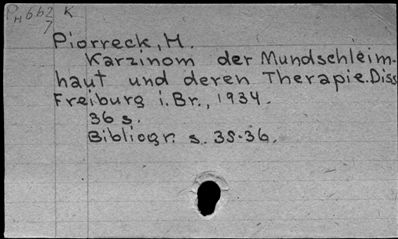 PH662 K
7
Piorreck, H.
Karzinom der Mundschleim-
haut und deren Therapie. Diss
Freiburg i. Br., 1934.
36 s.
Bibliogr. s. 35-36.